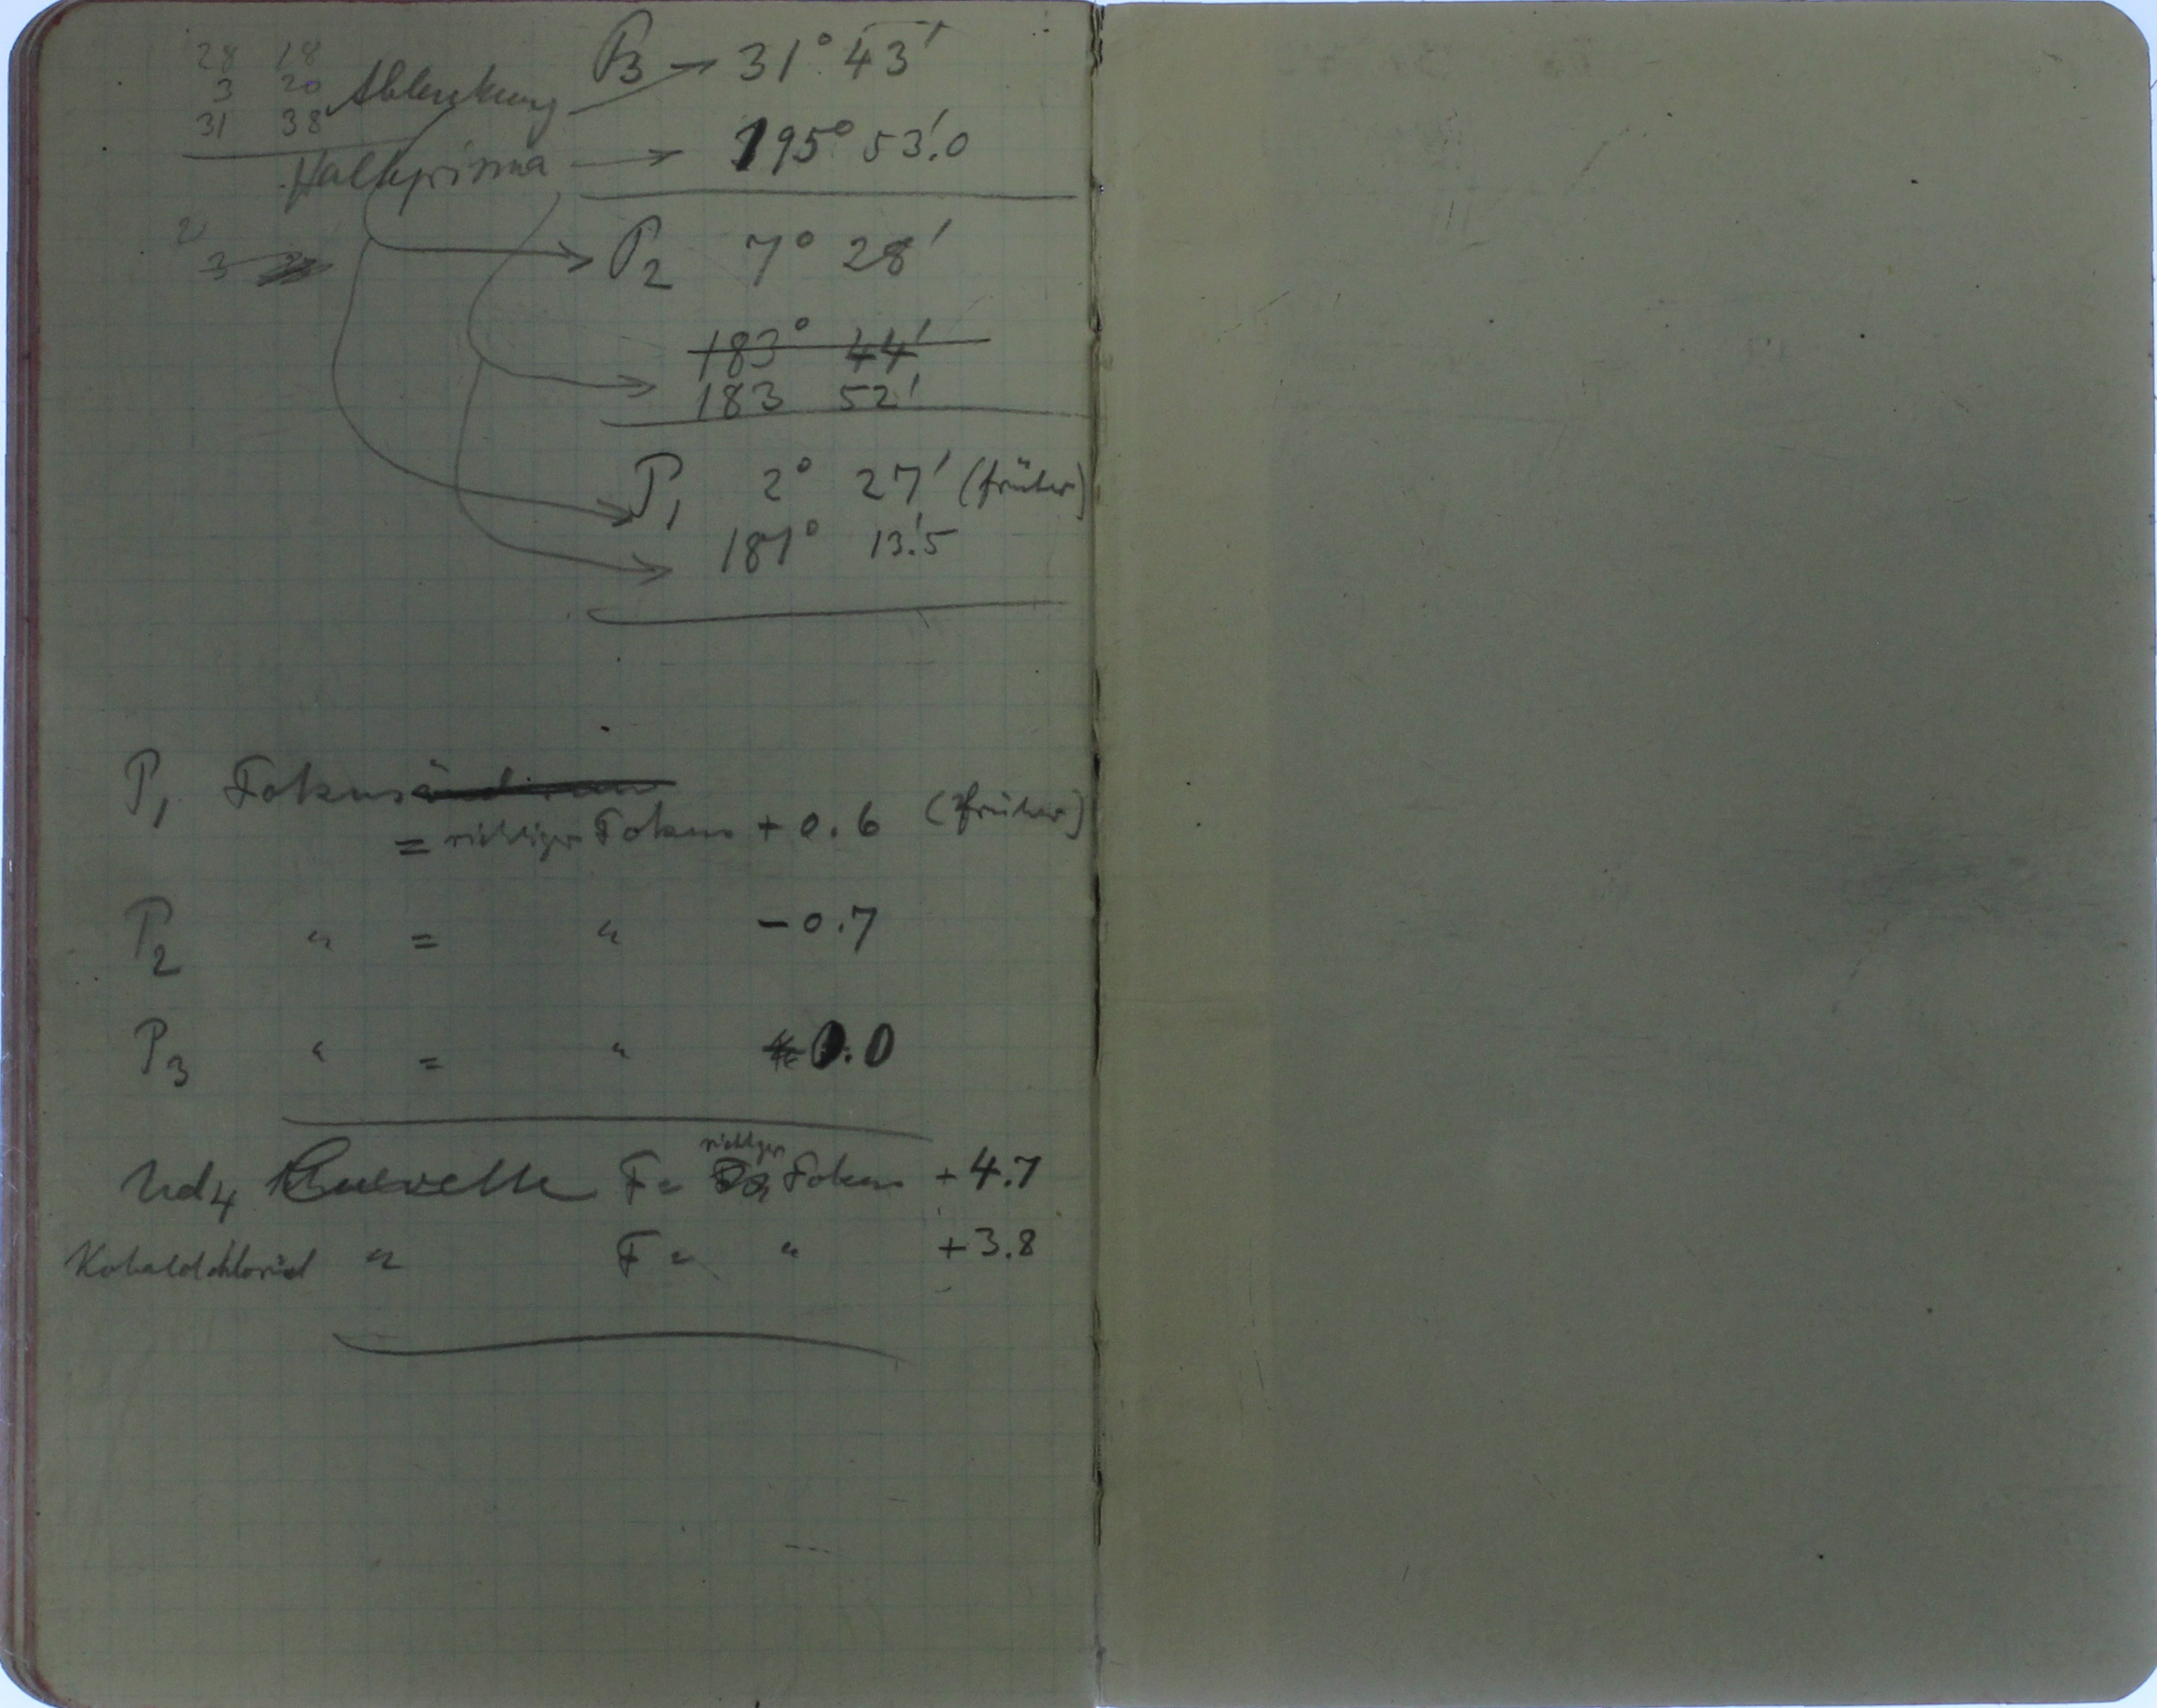 28 18
3 20
31 38
Ablenkung
P3 → 31° 43'
Halbprisma → 195° 53.'0
2
3
P2 7° 28'
183° 44'
183 52'
P1 2° 27' (früher)
181° 13.'5
P1 Fokus
= richtiger Fokus + 0.6 (früher)
P2 " = " - 0.7
P3 " = " 0.0
richtiger
Nd4 Cuevette F = Fokus + 4.7
Kobaldchlorid " F = " + 3.8